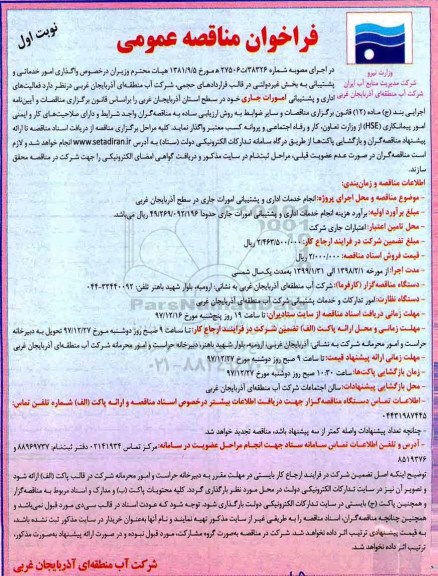 نوبت اول
فراخوان مناقصه عمومی
وزارت نیرو
شرکت مدیریت منابع آب ایران
شرکت آب منطقه‌ای آذربایجان غربی
در اجرای مصوبه شماره ۳۸۳۲۶/ت۲۷۵۰۶ه مورخ ۱۳۸۱/۹/۵ هیات محترم وزیران درخصوص واگذاری امور خدماتی و
پشتیبانی به بخش غیردولتی در قالب قراردادهای حجمی، شرکت آب منطقه‌ای آذربایجان غربی درنظر دارد فعالیت‌های
اداری و پشتیبانی امورات جاری خود در سطح استان آذربایجان غربی را براساس قانون برگزاری مناقصات و آیین‌نامه
اجرایی بند (ج) ماده (۱۲) قانون برگزاری مناقصات و سایر ضوابط به روش ارزیابی ساده به مناقصه‌گران واجد شرایط و دارای صلاحیت‌های کار و ایمنی
امور پیمانکاری (HSE) از وزارت تعاون، کار و رفاه اجتماعی و پروانه کسب معتبر واگذار نماید. کلیه مراحل برگزاری مناقصه از دریافت اسناد مناقصه تا ارائه
پیشنهاد مناقصه‌گران و بازگشایی پاکت‌ها از طریق درگاه سامانه تدارکات الکترونیکی دولت (ستاد) به آدرس www.setadiran.ir انجام خواهد شد و لازم
است مناقصه‌گران در صورت عدم عضویت قبلی، مراحل ثبت‌نام در سایت مذکور و دریافت گواهی امضای الکترونیکی را جهت شرکت در مناقصه محقق
سازند.
اطلاعات مناقصه و زمان‌بندی:
- موضوع مناقصه و محل اجرای پروژه: انجام خدمات اداری و پشتیبانی امورات جاری در سطح آذربایجان غربی
- مبلغ برآورد اولیه: برآورد هزینه انجام خدمات اداری و پشتیبانی امورات جاری حدودا ۴۹/۲۶۹/۰۹۲/۱۹۶ ریال می‌باشد.
- محل تامین اعتبار: اعتبارات جاری شرکت
- مبلغ تضمین شرکت در فرایند ارجاع کار: ۲/۴۶۳/۵۰۰/۰۰۰ ریال
- قیمت فروش اسناد مناقصه: ۲/۰۰۰/۰۰۰ ریال
- مدت اجرا: از مورخه ۱۳۹۸/۲/۱ الی ۱۳۹۹/۱/۳۱ به‌مدت یک‌سال شمسی
- دستگاه مناقصه‌گزار (کارفرما): شرکت آب منطقه‌ای آذربایجان غربی به نشانی: ارومیه، بلوار شهید باهنر تلفن: ۳۳۴۴۰۰۹۲-۰۴۴
- دستگاه نظارت: امور تدارکات و خدمات پشتیبانی شرکت آب منطقه‌ای آذربایجان غربی
- مهلت زمانی دریافت اسناد مناقصه از سایت ستادیران: تا ساعت ۱۹ روز پنج‌شنبه مورخ ۹۷/۱۲/۱۶
- مهلت زمانی و محل ارائه پاکت (الف) تضمین شرکت در فرایند ارجاع کار: تا ساعت ۹ صبح روز دوشنبه مورخ ۹۷/۱۲/۲۷ تحویل به دبیرخانه
حراست و امور محرمانه شرکت به نشانی: آذربایجان غربی، ارومیه، بلوار شهید باهنر، دبیرخانه حراست و امور محرمانه شرکت آب منطقه‌ای آذربایجان غربی
- مهلت زمانی ارائه پیشنهاد قیمت: تا ساعت ۹ صبح روز دوشنبه مورخ ۹۷/۱۲/۲۷
- زمان بازگشایی پاکت‌ها: ساعت ۱۰:۳۰ صبح روز دوشنبه مورخ ۹۷/۱۲/۲۷
- محل بازگشایی پیشنهادات: سالن اجتماعات شرکت آب منطقه‌ای آذربایجان غربی
- اطلاعات تماس دستگاه مناقصه‌گزار جهت دریافت اطلاعات بیشتر درخصوص اسناد مناقصه و ارائه پاکت (الف) شماره تلفن تماس:
۰۴۴۳۱۹۸۷۴۴۵
- چنانچه تعداد پیشنهادات واصله کمتر از سه پیشنهاد باشد، مناقصه تجدید خواهد شد.
- آدرس و تلفن اطلاعات تماس سامانه ستاد جهت انجام مراحل عضویت در سامانه: مرکز تماس ۰۲۱۴۱۹۳۴ دفتر ثبت‌نام: ۸۸۹۶۹۷۳۷ و
۸۵۱۹۳۷۶
توضیح اینکه اصل تضمین شرکت در فرایند ارجاع کار بایستی در مهلت مقرر به دبیرخانه حراست و امور محرمانه شرکت در قالب پاکت (الف) ارائه شود
و تصویر آن نیز در سایت تدارکات الکترونیکی دولت در محل مورد نظر بارگذاری گردد. کلیه محتویات پاکت (ب) و مدارک و اسناد مربوط به مناقصه‌گزار
و همچنین پاکت (ج) بایستی در سایت تدارکات الکترونیکی دولت بارگذاری شود. توجه شود که عودت اسناد در قالب سی‌دی مورد قبول نمی‌باشد و
همچنین چنانچه مناقصه‌گران، اسناد مناقصه را به طریقی غیر از سایت مذکور تهیه نمایند و نام آنها به‌عنوان خریدار در سایت مذکور ثبت نشده باشد،
به قیمت پیشنهادی ترتیب اثر داده نخواهد شد. شرکت در مناقصه به‌صورت گروه مشارکت، مورد قبول نبوده و در صورت ارائه پیشنهاد به‌صورت مذکور،
ترتیب اثر داده نخواهد شد.
شرکت آب منطقه‌ای آذربایجان غربی